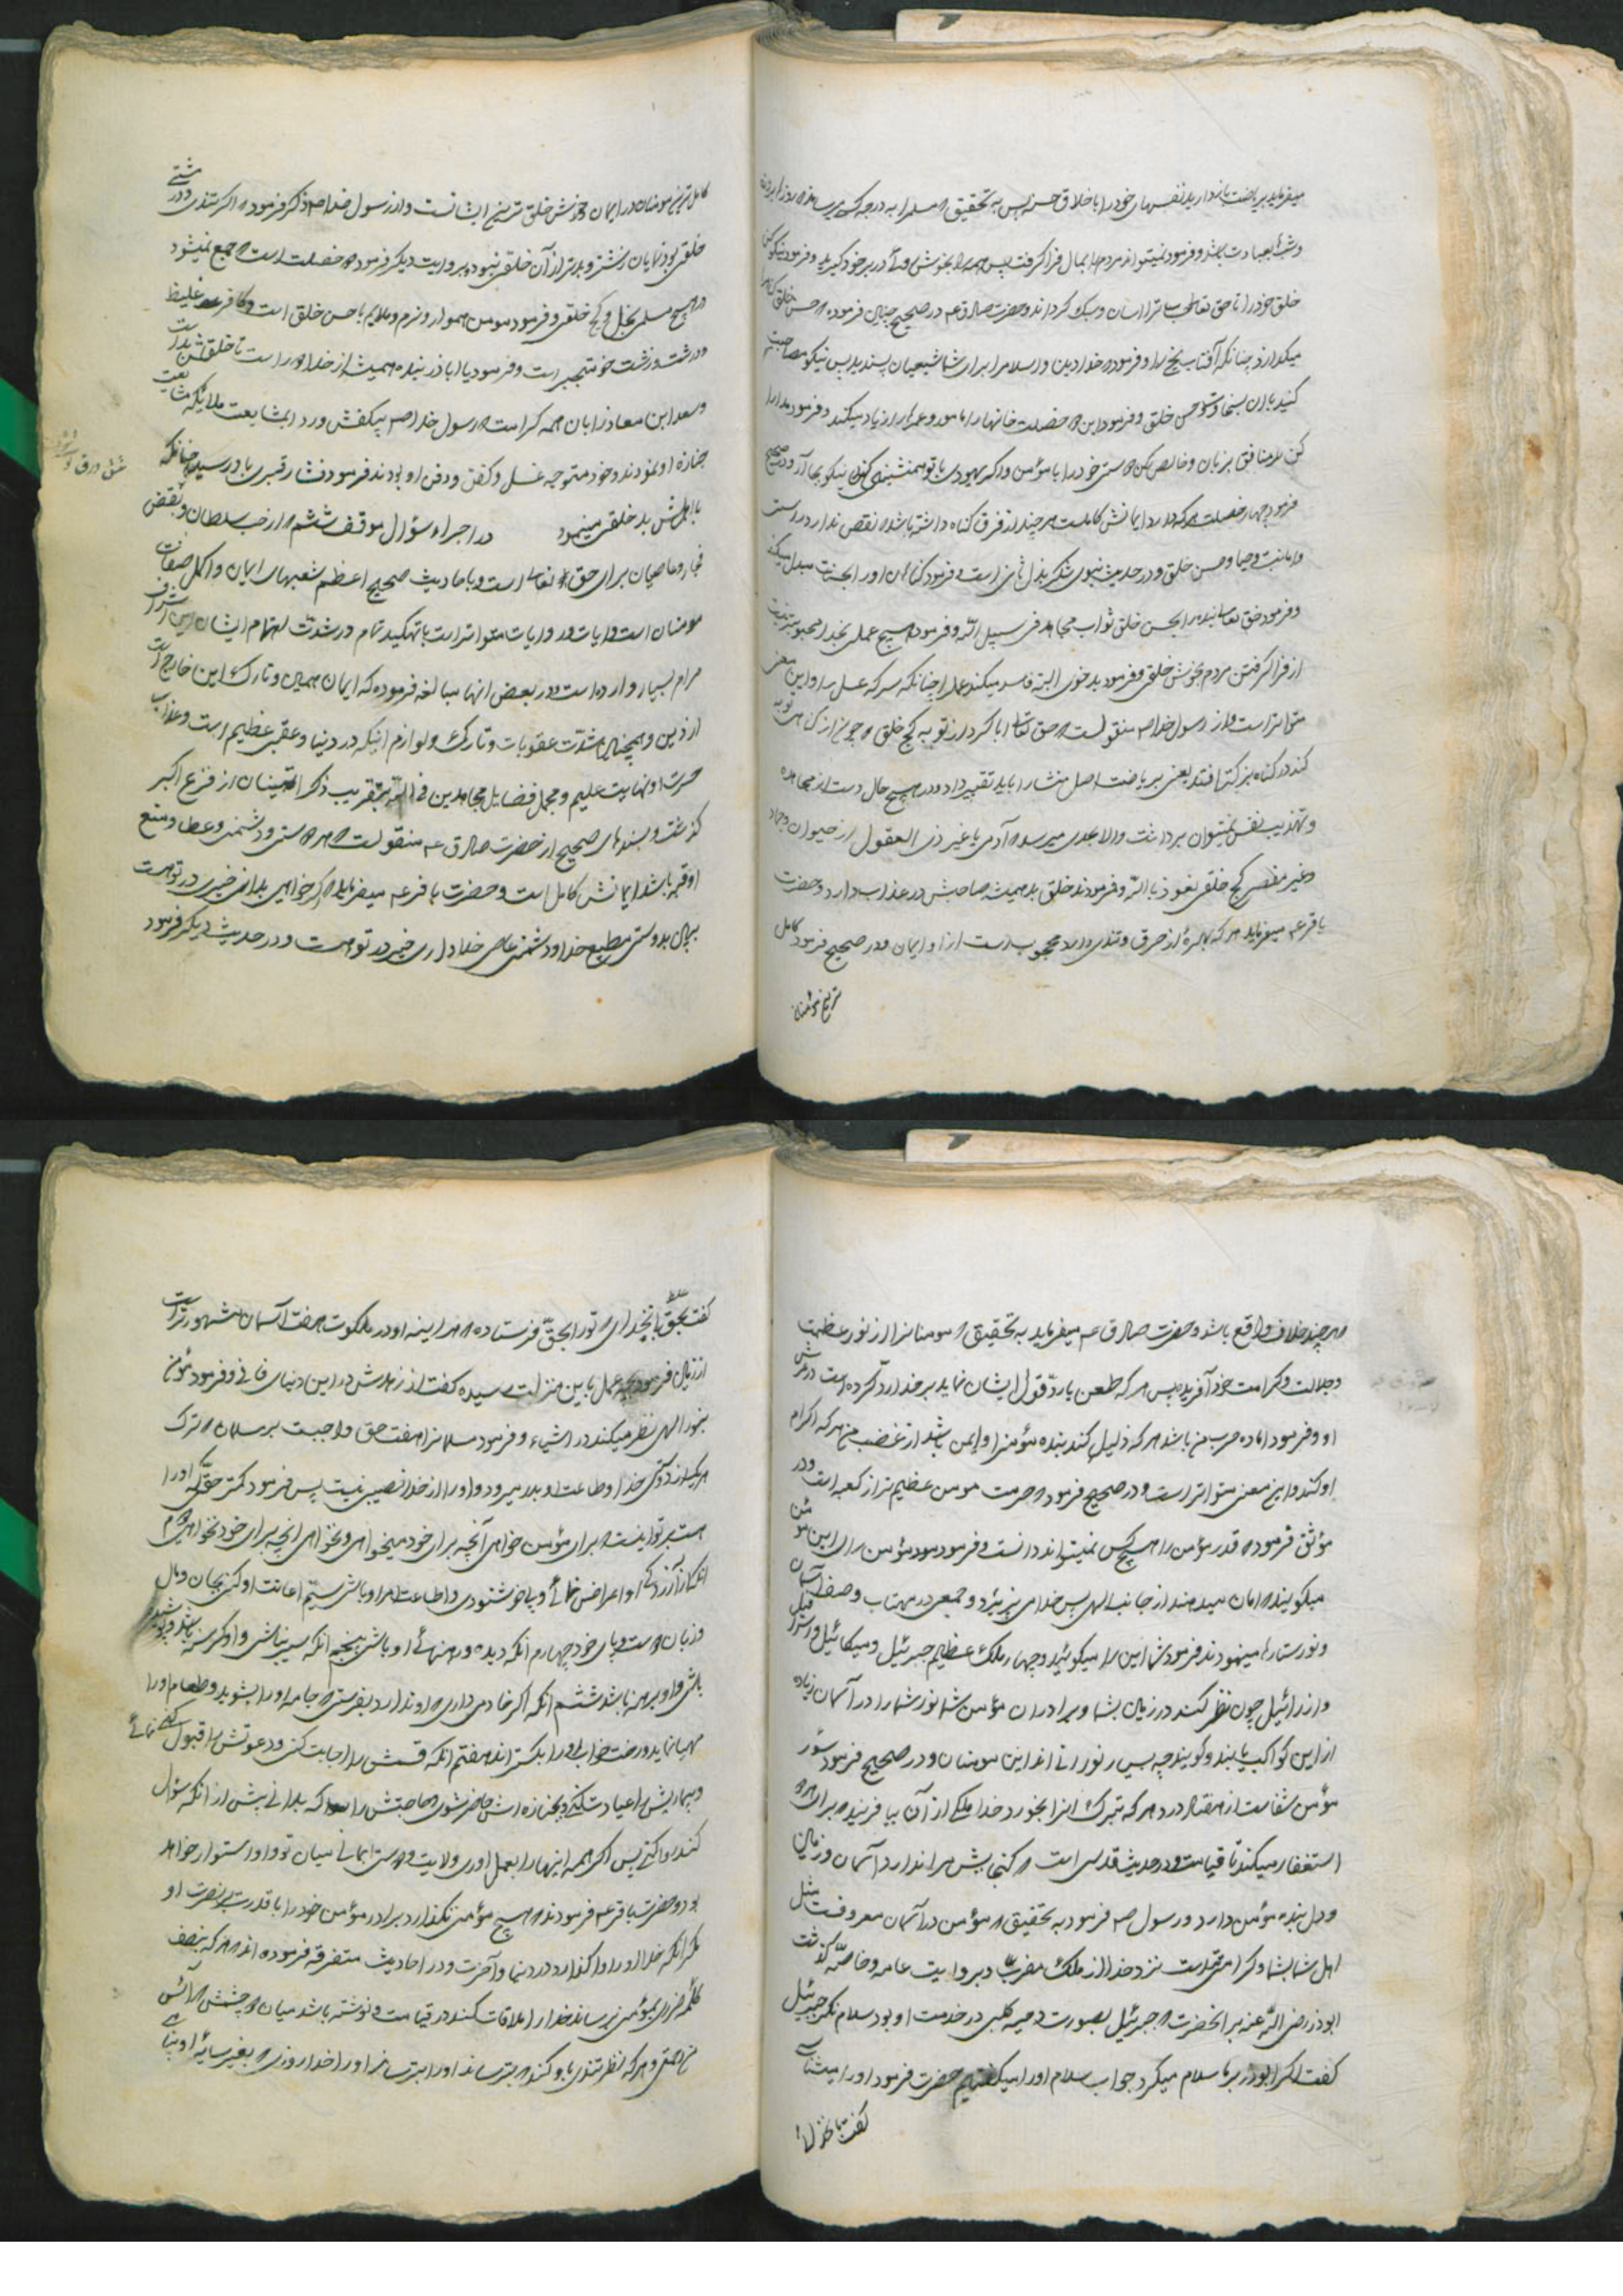 میفرماید بریاضت بازدارید نفسهای خود را باخلاق حسنه پس به تحقیق که مسلم را به درجه کسی میرساند که روزها روزه
و شبها بعبادت باشد و فرمود نمیتوانند مردم را بمال فرا گرفت پس همه را بخوش روئی در بر خود گیرید و فرمود نیکو کن
خلق خود را تا حق تعالی حساب ترا آسان و سبک گرداند و حضرت صادق ع در صحیح چنین فرموده که حسن خلق گناه را
میگدازد چنانکه آفتاب یخ را و فرمود که خدا دین و اسلام را برای شما شیعیان پسندید پس نیکو مصاحبت
کنید با آن بسخاوت و حسن خلق و فرمود این دو خصلت خانها را مامور و عمرها را زیاد میکند و فرمود مدارا
کن با منافق بزبان و خالص کن دوستی خود را با مؤمن و اگر یهودی با تو همنشینی کند نیکو بجا آر و در صحیح
فرمود چهار خصلت هر که دارد ایمانش کاملست هر چند از فرق گناه داشته باشد و نقص ندارد راستی
و امانت و حیا و حسن خلق و در حدیث نبوی شکر بدل ثانی است و فرمود گناهان او را بحسنات مبدل میکند
و فرمود حق تعالی بنده را بحسن خلق ثواب مجاهد فی سبیل الله و فرمود هیچ عملی بخدا محبوبتر نیست
از فرا گرفتن مردم بخوش خلقی و فرمود بد خوی البته فاسد میکند عمل را چنانکه سرکه عسل را و این معنی
متواتر است و از رسول خدا ص منقولست که حق تعالی ابا کرد از توبه کج خلق که چون از گناهی توبه
کند در گناه بزرگتر افتد یعنی بریاضت اصل منشا را باید تغییر داد و در هیچ حال دست از مجاهده
و تهذیب نفس نمیتوان برداشت والا بحدی میرسد که آدمی با غیر ذی العقول از حیوان و جماد
و غیر مقصر کج خلقی نعوذ بالله و فرمودند خلق بد همیشه صاحبش در عذاب دارد و حضرت
باقر ع میفرماید هر که بهرهٔ از حرق و تندی دارد محجوب است از او ایمان و در صحیح فرمود کامل
ترین مؤمنان
کامل ترین مومنان در ایمان خوش خلق ترین ایشانست و از رسول خدا ص ذکر فرموده که اگر تندی و درشتی
خلقی بود نمایان زشتتر و بدتر از آن خلقی نبود و بروایت دیگر فرمود دو خصلت است که جمع نمیشود
در هیچ مسلم بخل و کج خلقی و فرمود مومن هموار و نرم و ملایم با حسن خلق است و کافر غلیظ
و درشت و زشت خو متجبر است و فرمود یا اباذر بنده همیشه از خدا دور است تا خلقش بد است
و سعد ابن معاذ را با آن همه کرامت که رسول خدا ص بی کفش و ردا بمشایعت ملائکه مشایعت
جنازه او نمودند و خود متوجه غسل و کفن و دفن او بودند فرمود فشار قبری باو رسید چنانکه
با اهلش بد خلقی مینمود در اجراء سؤال موقف ششم که از حب سلطان و بغض
فجار و عاصیان برای حق تعالی است و باحادیث صحیح اعظم شعبهای ایمان و اکمل صفات
مومنان است و ایات و روایات متواتر است با تهکید تمام و رشدت اهتمام ایشان این اشرف
مرام بسیار وارد است و در بعض انها مبالغه فرموده که ایمان همین و تارک این خارج است
از دین و همچنان شدت عقوبات و تارک و لوازم اینکه در دنیا و عقبی عظیم است و عذاب
حسرت او نهایت علیم و مجمل فضایل مجاهدین فی الله بتقریب ذکر امنینان از فزع اکبر
گذشت و بسندهای صحیح از حضرت صادق ع منقولست که هر که دوستی و دشمنی و عطا و منع
او قربه باشد ایمانش کامل است و حضرت باقر ع میفرماید که اگر خواهی بدانی خیری در تو هست
ببین بدوستی مطیع خدا و دشمنی عاصی خدا داری خیر در تو هست و در حدیث دیگر فرمود
هر چند خلاف واقع باشد و حضرت صادق ع میفرماید به تحقیق که مومنانرا از نور عظمت
و جلالت و کرامت خود آفریده پس هر که طعن یا رد قول ایشان نماید بر خدا رد کرده است در عرش
او و فرمود اماده حرب من باشد هر که ذلیل کند بنده مؤمن را و ایمن باشد از غضب من هر که اکرام
او کند و این معنی متواتر است و در صحیح فرمود که حرمت مومن عظیم تر از کعبه است و در
مؤثق فرموده قدر مؤمن را هیچکس نمیتواند دانست و فرمود مؤمن را برای این مؤمن
میگویند که امان میدهند از جانب الهی پس خدا می پذیرد و جمعی در مهتاب وصف آسمان
و نور ستارها مینمودند فرمود شما این را میگوئید و چهار ملک عظیم جبرئیل و میکائیل و اسرافیل
و ازرائیل چون نظر کنند در زمین بشما و برادران مؤمن شما نور شما را در آسمان زیاده
از این کواکب یابند و گویند چه بسیار نورانی اند این مومنان و در صحیح فرمود سؤر
مؤمن شفاست از هفتاد درد هر که تبرک انرا بخورد خدا ملکی از آن بیافریند که برای هر دو
استغفار میکند تا قیامت و در حدیث قدسی است که گنجایش مرا ندارد آسمان و زمین
و دل بنده مؤمن دارد و رسول ص فرمود به تحقیق که مؤمن در آسمان معروفست مثل
اهل شما بشما و گرامی تر است نزد خدا از ملک مقرب و بروایت عامه و خاصه گذشت
ابوذر رضی الله عنه بر انحضرت و جبرئیل بصورت دحیه کلبی در خدمت او بود سلام نکرد جبرئیل
گفت اگر ابوذر بر ما سلام میکرد جواب سلام او را میگفتیم حضرت فرمود او را میشناسی
گفت بحق انخدای
گفت بحق انخدای که تو را بحق فرستاده که هر اینه او در ملکوت هفت آسمان مشهورتر است
از زمین فرمود بچه عمل باین منزلت رسیده گفت از زهدش در این دنیای فانی و فرمود مؤمن
بنور الهی نظر میکند در اشیاء و فرمود مسلمانرا هفت حق واجبست بر مسلمان که ترک
هر یک از دوستی خدا و طاعت او بدر میرود و او را از خدا نصیبی نیست پس فرمود کمتر حقی که او را
هست بر تو اینست که برای مؤمن خواهی آنچه برای خود میخواهی و نخواهی انچه برای خود نخواهی دوم
انکه از آزردگی او اعراض نمائی و پیرو خوشنودی و اطاعت امر او باشی سیم اعانت او کنی بجان و مال
و زبان و دست و پای خود چهارم انکه دیده و رهنمای او باشی پنجم انکه سیر نباشی و او گرسنه باشد و پوشیده
باشی و او برهنه باشد ششم انکه اگر خادمی داری و او ندارد بفرستی که جامه او را بشوید و طعام او را
مهیا نماید و رخت خواب او را بگستراند هفتم انکه قسمش را اجابت کنی و دعوتش را قبول کنی نمائی
و بیماریش را عیادت کنی و بجنازه اش حاضر شوی و حاجتش را که بدانی پیش از انکه سؤال
کند روا کنی پس اگر همه اینها را بعمل اوری ولایت و دوستی ایمانی میان تو و او استوار خواهد
بود و حضرت باقر ع فرمودند که هیچ مؤمنی نگذارد برادر مؤمن خود را با قدرت بر نصرت او
مگر انکه خدا او را واگذارد در دنیا و آخرت و در احادیث متفرقه فرموده اند که هر که بنصف
کلمه ضرری بمؤمنی رساند خدا را ملاقات کند در قیامت و نوشته باشد میان دو چشمش که آئس
من رحمتی و هر که نظر تندی باو کند که بترساند او را بترساند او را خدا روزی که بغیر سایهٔ او پناهی